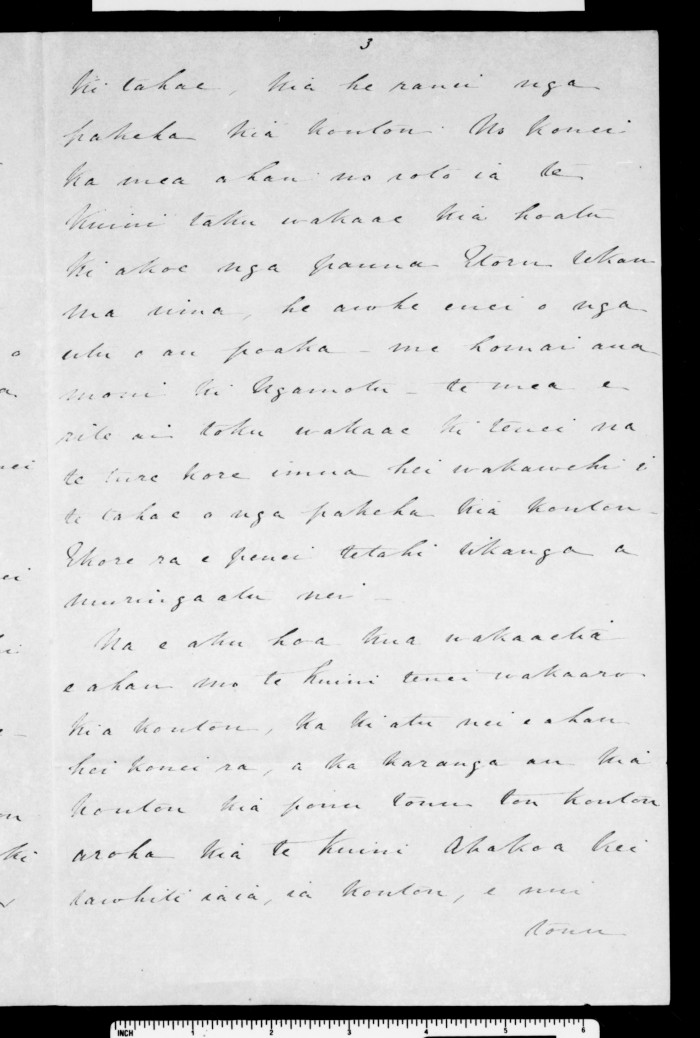 3
ki tahae, kia he ranei nga
pakeha kia koutou. No konei
ka mea ahau no roto ia te
Kuini taku wakaae kia hoatu
ki akoe nga pauna Etoru tekau
ma rima, he awhe enei o nga
utu o au poaka - me homai aua
moni ki Ngamotu - te mea e
rite ai toku wakaae ki tenei na
te ture kore imua hei wakawehi i
te tahae o nga pakeha kia koutou -
Ekore ra e penei tetahi tikanga a
muringaatu nei -
Na e aku hoa kua wakaaetia
e ahau mo te Kuini tenei wakaaro
kia koutou, ka kiatu nei e ahau
hei konei ra, a ka karanga au kia
koutou kia ponu tonu ton koutou
aroha kia te Kuini Ahakoa kei
tawhiti iaia, ia koutou, e nui
tonu
o
a
nei
ei
ki
INCH 1 2 3 4 5 6